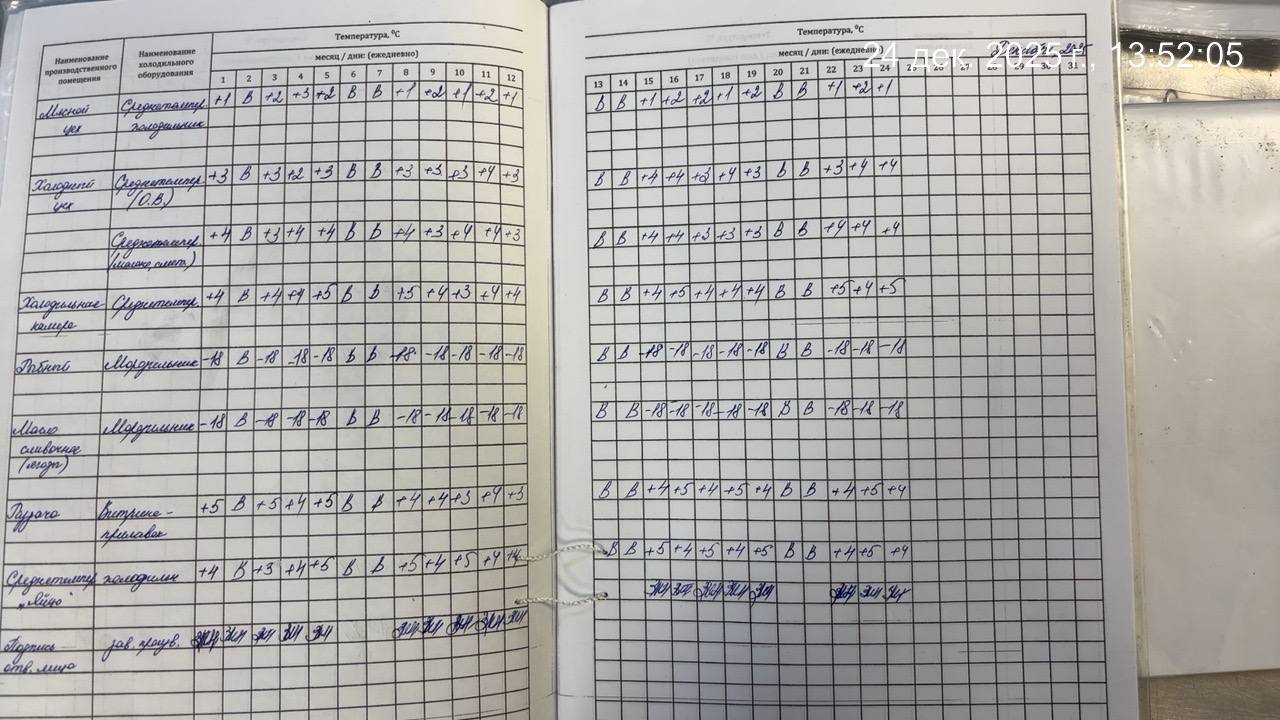 Температура, °С
месяц / дни: (ежедневно)
Наименование производственного помещения
Наименование холодильного оборудования
1 2 3 4 5 6 7 8 9 10 11 12
Температура, °С
месяц / дни: (ежедневно) Декабрь 2025
24 дек. 2025 г., 13:52:05
13 14 15 16 17 18 19 20 21 22 23 24 25 26 27 28 29 30 31
Мясной цех Среднетемпер. холодильник +1 В +2 +3 +2 В В +1 +2 +1 +2 +1
В В +1 +2 +2 +1 +2 В В +1 +2 +1
Холодный цех Среднетемпер. (О.В.) +3 В +3 +2 +3 В В +3 +3 +3 +4 +3
В В +4 +4 +3 +4 +3 В В +3 +4 +4
Среднетемпер. (молоко, смет.) +4 В +3 +4 +4 В В +4 +3 +4 +4 +3
В В +4 +4 +3 +3 +3 В В +4 +4 +4
Холодильная камера Среднетемпер. +4 В +4 +4 +5 В В +5 +4 +3 +4 +4
В В +4 +5 +4 +4 +4 В В +5 +4 +5
Морозильник -18 В -18 -18 -18 В В -18 -18 -18 -18 -18
В В -18 -18 -18 -18 -18 В В -18 -18 -18
Масло сливочное (ягоды) Морозильник -18 В -18 -18 -18 В В -18 -18 -18 -18 -18
В В -18 -18 -18 -18 -18 В В -18 -18 -18
Раздача Витрина-прилавок +5 В +5 +4 +5 В В +4 +4 +3 +4 +3
В В +4 +5 +4 +5 +4 В В +4 +5 +4
Среднетемпер. холодильн "Яйцо" +4 В +3 +4 +5 В В +5 +4 +5 +4 +4
В В +5 +4 +5 +4 +5 В В +4 +5 +4
Подпись отв. лица зав. произв.